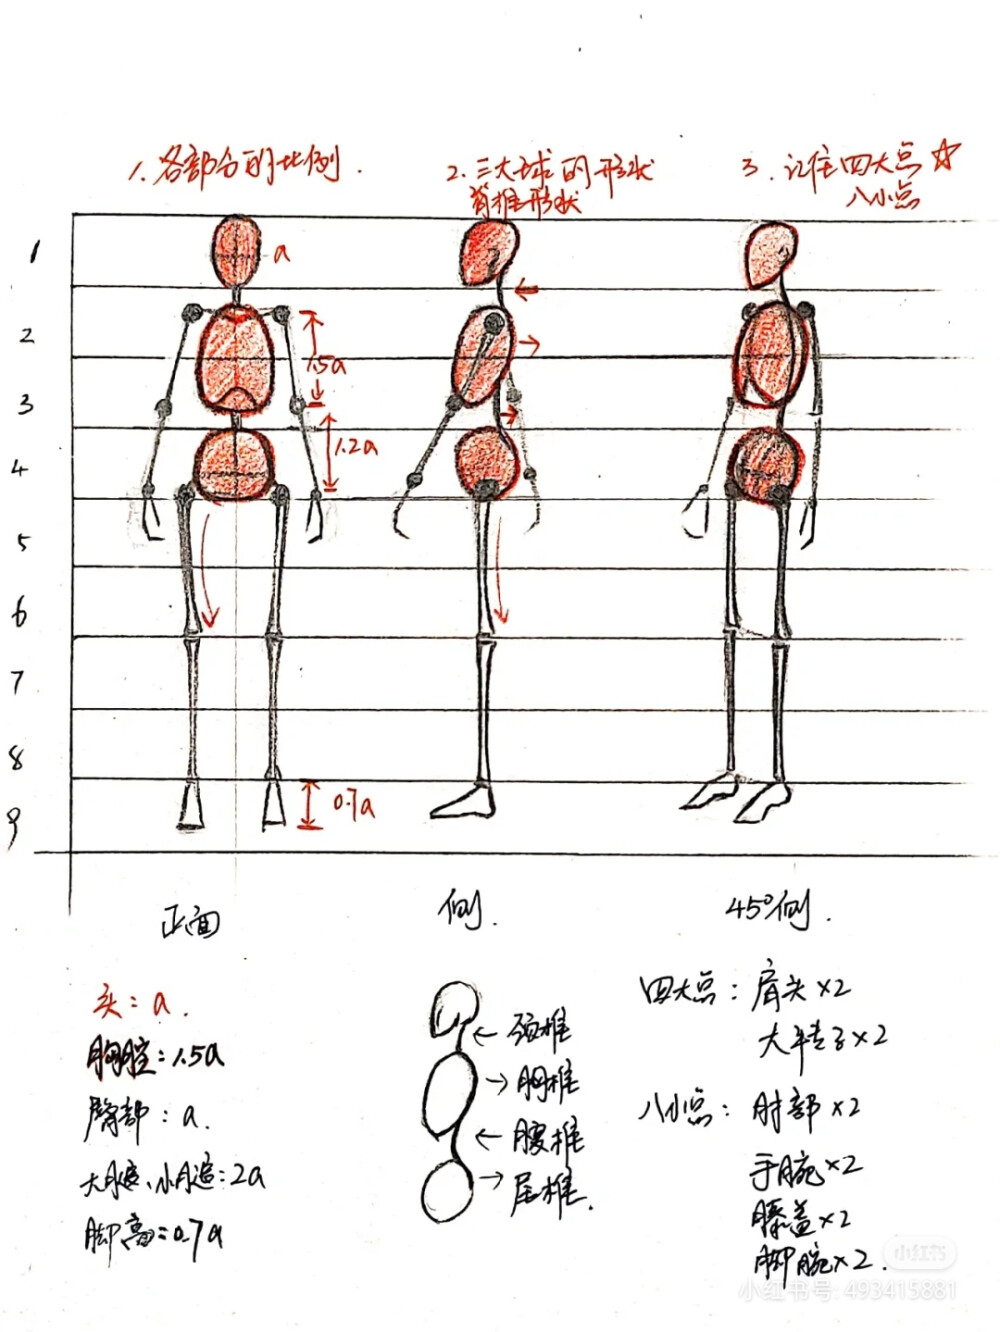 1. 各部分的比例.
2. 三大球的形状
脊椎形状
3. 记住四大点☆
八小点
1
2
3
4
5
6
7
8
9
a
1.5a
1.2a
0.7a
正面
侧.
45°侧.
头: a.
胸腔: 1.5a
臀部: a.
大腿、小腿: 2a
脚高=0.7a
颈椎
胸椎
腰椎
尾椎.
四大点: 肩头×2
大转子×2
八小点: 肘部×2
手腕×2
膝盖×2
脚腕×2.
小红书
小红书号: 493415881